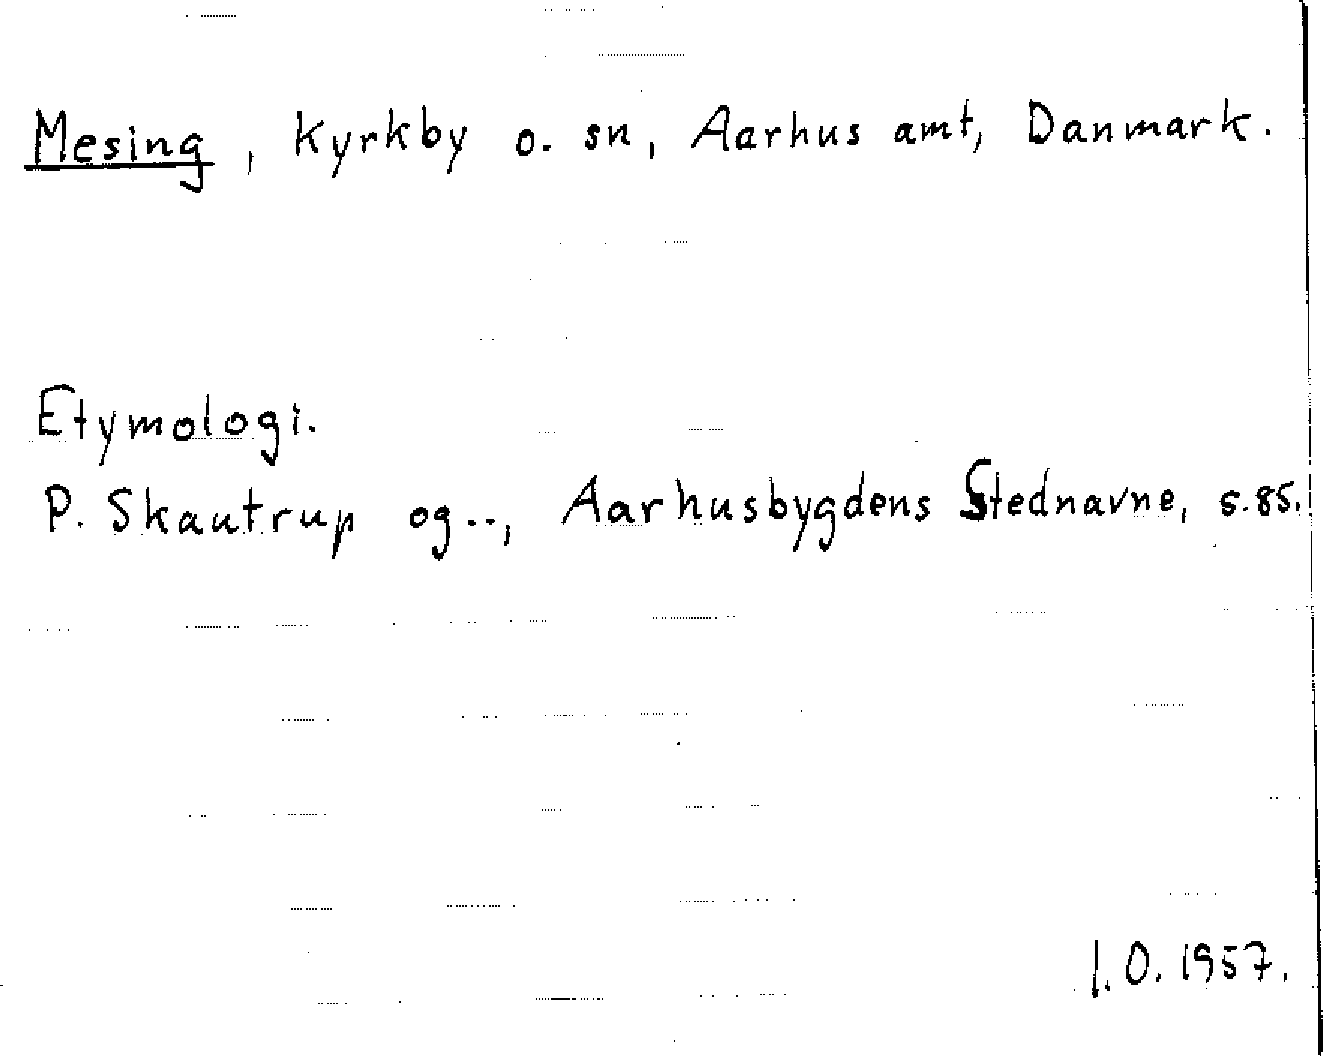 Mesing, Kyrkby o. sn, Aarhus amt, Danmark.
Etymologi.
P. Skautrup og.., Aarhusbygdens Stednavne, s.85.
I.O. 1957.